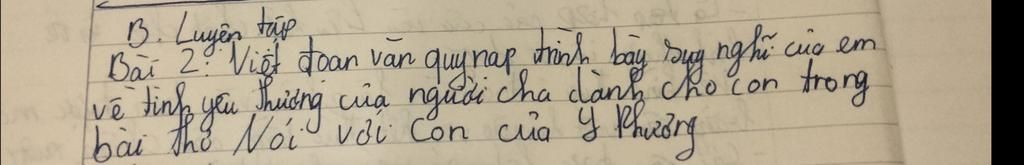 B. Luyện tập
Bài 2: Viết đoạn văn quy nạp trình bày suy nghĩ của em
về tình yêu thương của người cha dành cho con trong
bài thơ Nói với con của Y Phương